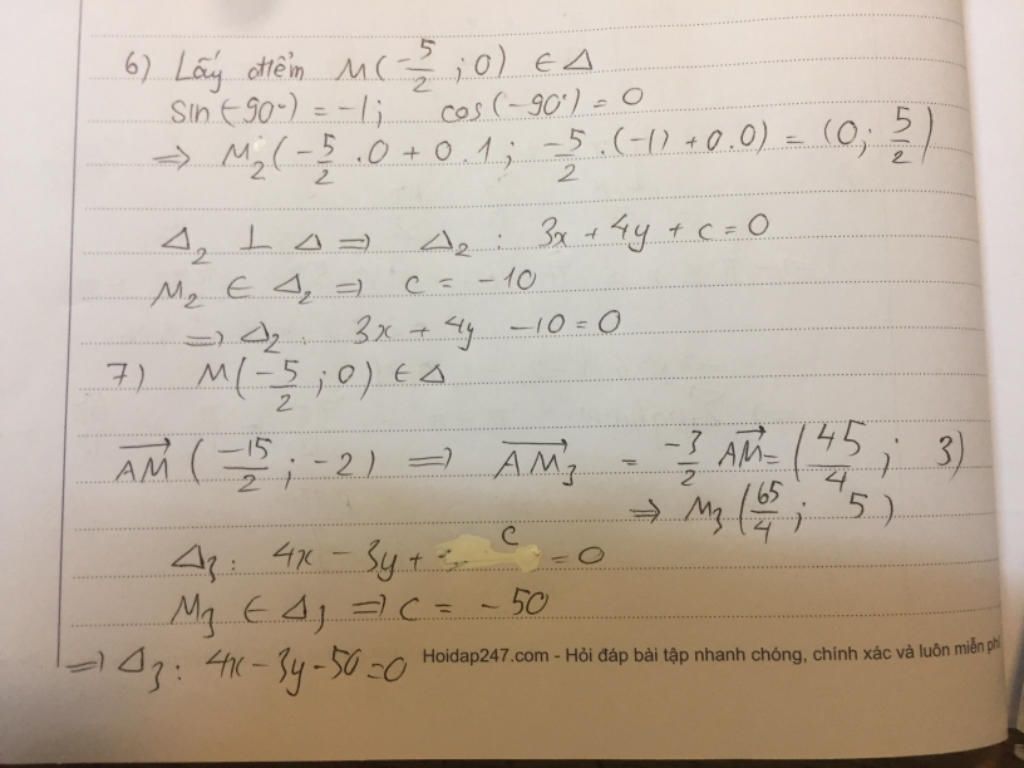 6) Lấy điểm M(-5/2 ; 0) ∈ Δ
sin(-90°) = -1; cos(-90°) = 0
=> M₂(-5/2 .0 + 0.1 ; -5/2 .(-1) + 0.0) = (0; 5/2)
Δ₂ ⊥ Δ => Δ₂ : 3x + 4y + c = 0
M₂ ∈ Δ₂ => c = -10
=> Δ₂: 3x + 4y -10 = 0
7) M(-5/2 ; 0) ∈ Δ
AM→ (-15/2 ; -2) => AM₃→ = -3/2 AM→ = (45/4 ; 3)
=> M₃ (65/4 ; 5)
Δ₃: 4x - 3y + c = 0
M₃ ∈ Δ₃ => c = -50
=> Δ₃: 4x - 3y - 50 = 0
Hoidap247.com - Hỏi đáp bài tập nhanh chóng, chính xác và luôn miễn phí